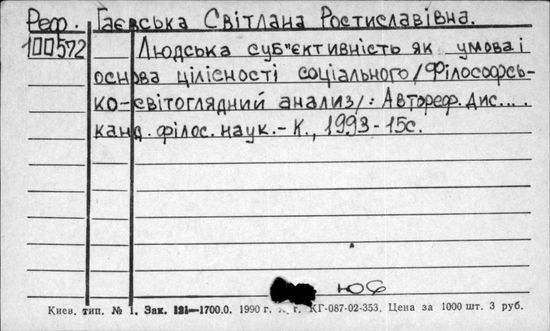 Реф. Гаєвська Світлана Ростиславівна.
100572 Людська суб"єктивність як умова і
основа цілісності соціального /Філософсь-
ко-світоглядний анализ/: Автореф. дис... .
канд. філос. наук. - К., 1993 - 15с.
Киев. тип. № 1. Зак. –1700.0. 1990 г. г. КГ-087-02-353. Цена за 1000 шт. 3 руб.